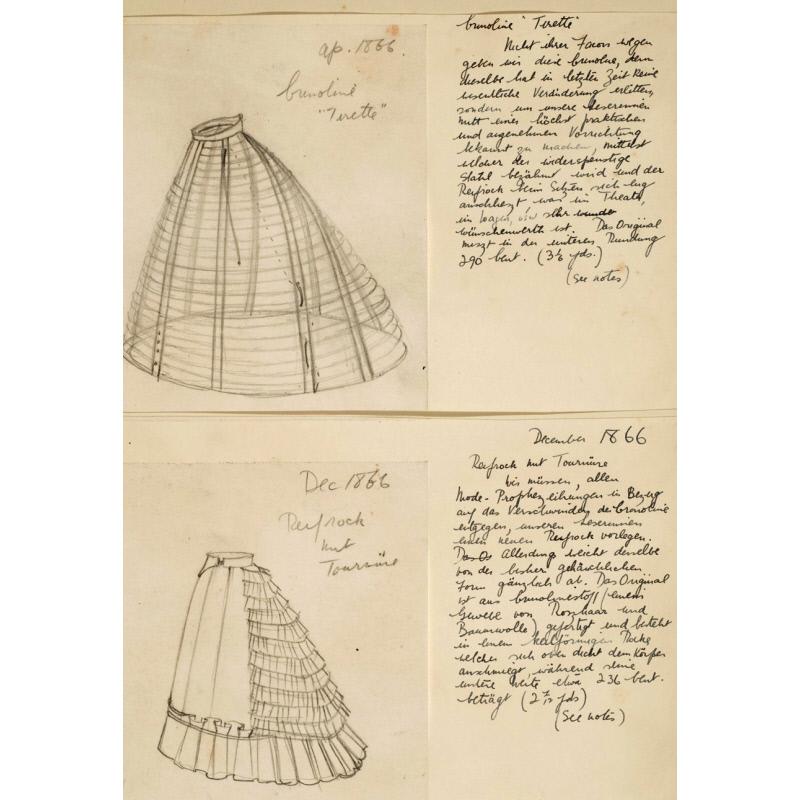 ap. 1866.
Crinoline
"Tirette"
Crinoline "Tirette"
Nicht ihrer Façon wegen
geben wir diese Crinoline, denn
dieselbe hat in letzter Zeit keine
wesentliche Veränderung erlitten,
sondern um unsere Leserinnen
mitt einer höchst praktischen
und angenehmen Vorrichtung
bekannt zu machen, mittelst
welcher der widerspenstige
Stahl bezähmt wird und der
Reifrock beim Sitzen sich eng
anschliezt was im Theater,
im Wagen, usw sehr
wünschenwerth ist. Das Original
miszt in der unteren Rundung
290 Cent. (3⅙ yds.)
(see notes)
Dec 1866
Reifrock
mit
Tournüre
December 1866
Reifrock mit Tournüre
Wir müssen, allen
Mode-Prophezeihungen in Bezug
auf das Verschwinden der Crinoline
entgegen, unseren Leserinnen
einen neuen Reifrock vorlegen.
Allerdings weicht derselbe
von der bisher gebräuchlichen
Form gänzlich ab. Das Original
ist aus Crinolinestoff (einem
Gewebe von Rosshaar und
Baumwolle) gefertigt und besteht
in einem keilförmigen Rocke
welcher sich oben dicht dem Körper
anschmiegt, während seine
untere Weite etwa 236 Cent.
beträgt (2 yds)
(See notes)